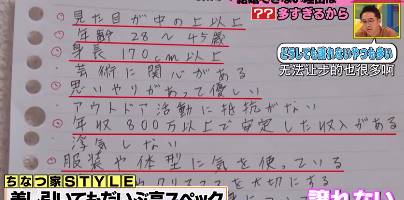 ??多すぎるから
どうしても譲れないやつも多い
无法让步的也很多啊
○見た目が中の上以上
○年齢 28〜45歳
○身長 170cm以上
○芸術に関心がある
○思いやりがあって優しい
○アウトドア活動に抵抗がない
○年収 800万以上で安定した収入がある
○浮気しない
○服装や体型に気を使っている
を大切にする
ちなつ家STYLE
差し引いてもだいぶ高スペック
譲れない